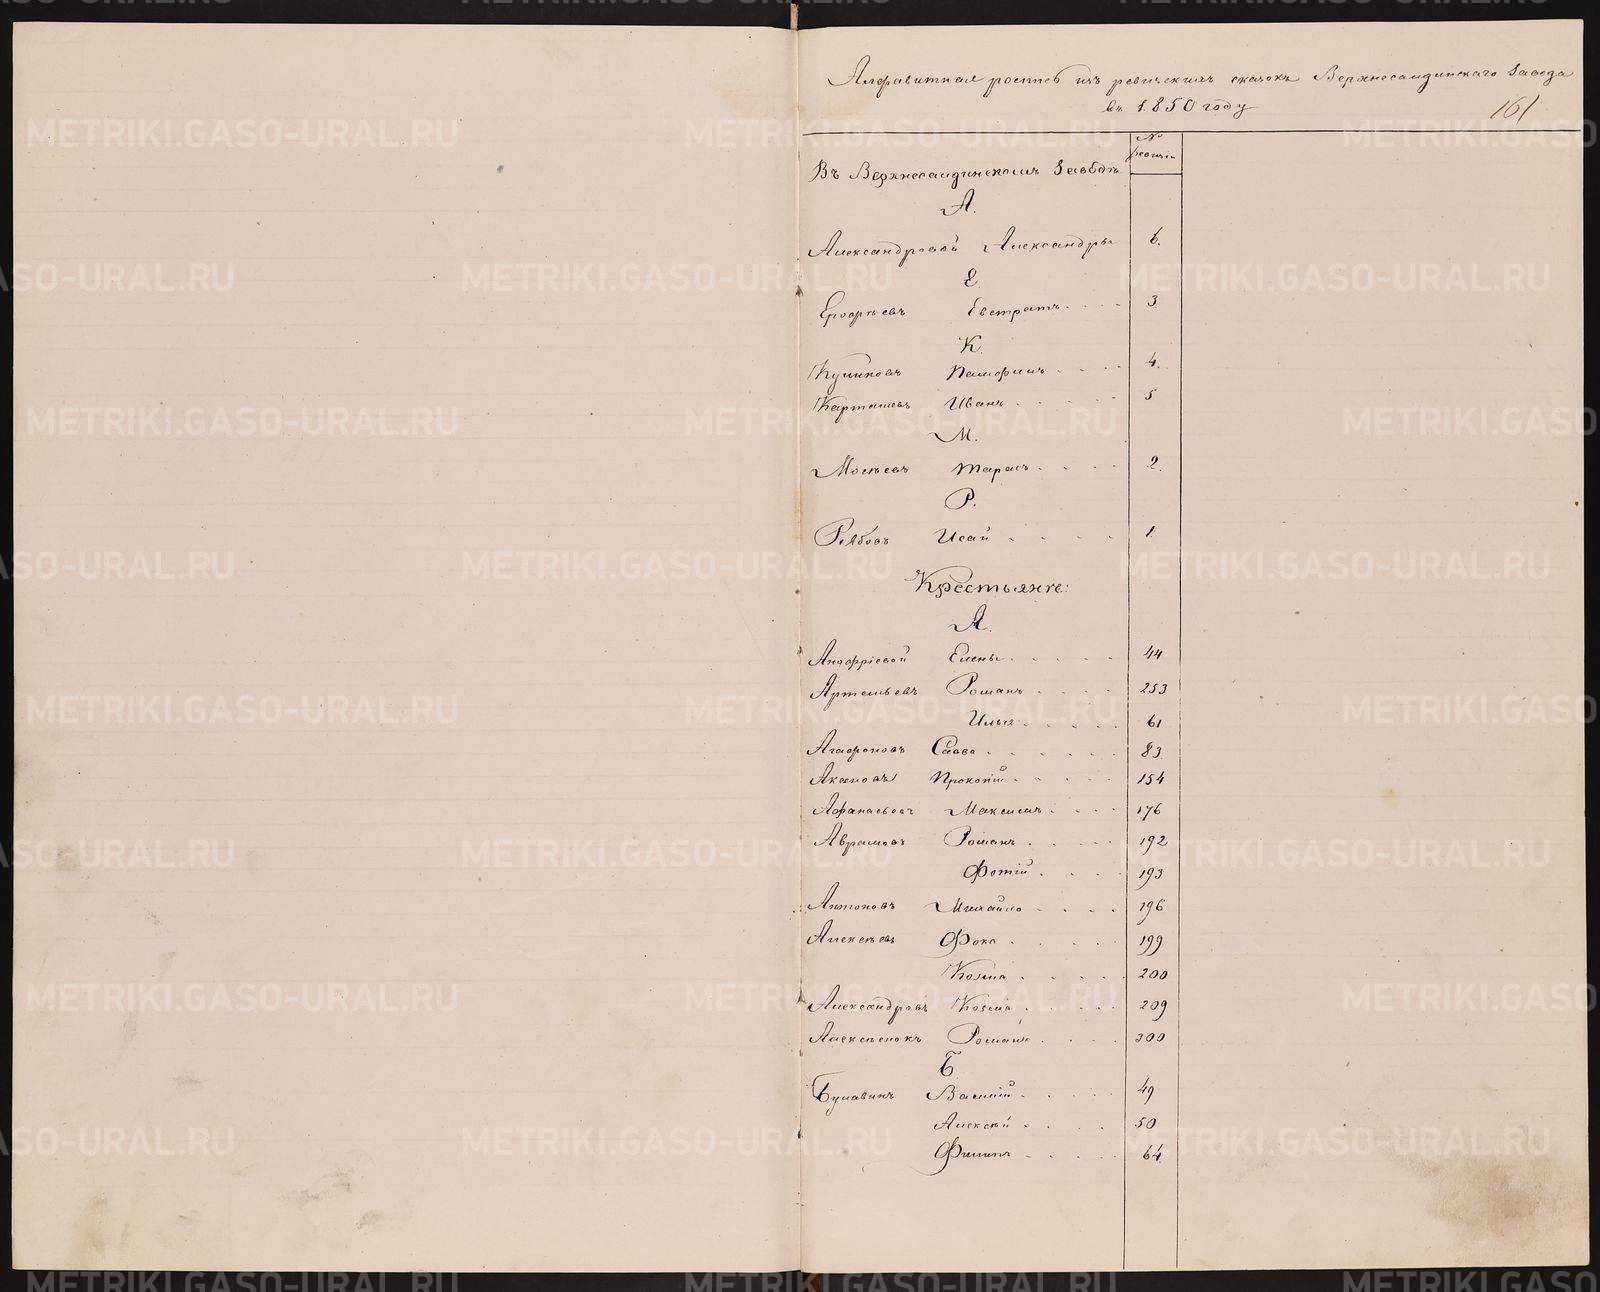 Алфавитная роспись изъ ревизскихъ сказокъ Верхнесалдинскаго Завода
въ 1850 году
161
№ ревизiи
Въ Верхнесалдинскомъ Заводѣ
А.
Александровой Александры 6.
Е.
Ерофѣевъ Евстратъ 3
К.
Куликовъ Памфилъ 4.
Карташевъ Иванъ 5
М.
Мосѣевъ Тарасъ 2.
Р.
Рябовъ Исай 1.
Крестьяне:
А.
Анофріевой Елены 44
Артемьевъ Романъ 253
Илья 61
Агафоновъ Савва 83
Аксеновъ Прокопій 154
Афанасьевъ Максимъ 176
Аврамовъ Романъ 192
Фотій 193
Антоновъ Михайло 196
Алексѣевъ Фока 199
Козма 200
Александровъ Козма 209
Алексѣенокъ Романъ 300
Б
Булавинъ Василій 49
Алексѣй 50
Филипъ 64
METRIKI.GASO-URAL.RU